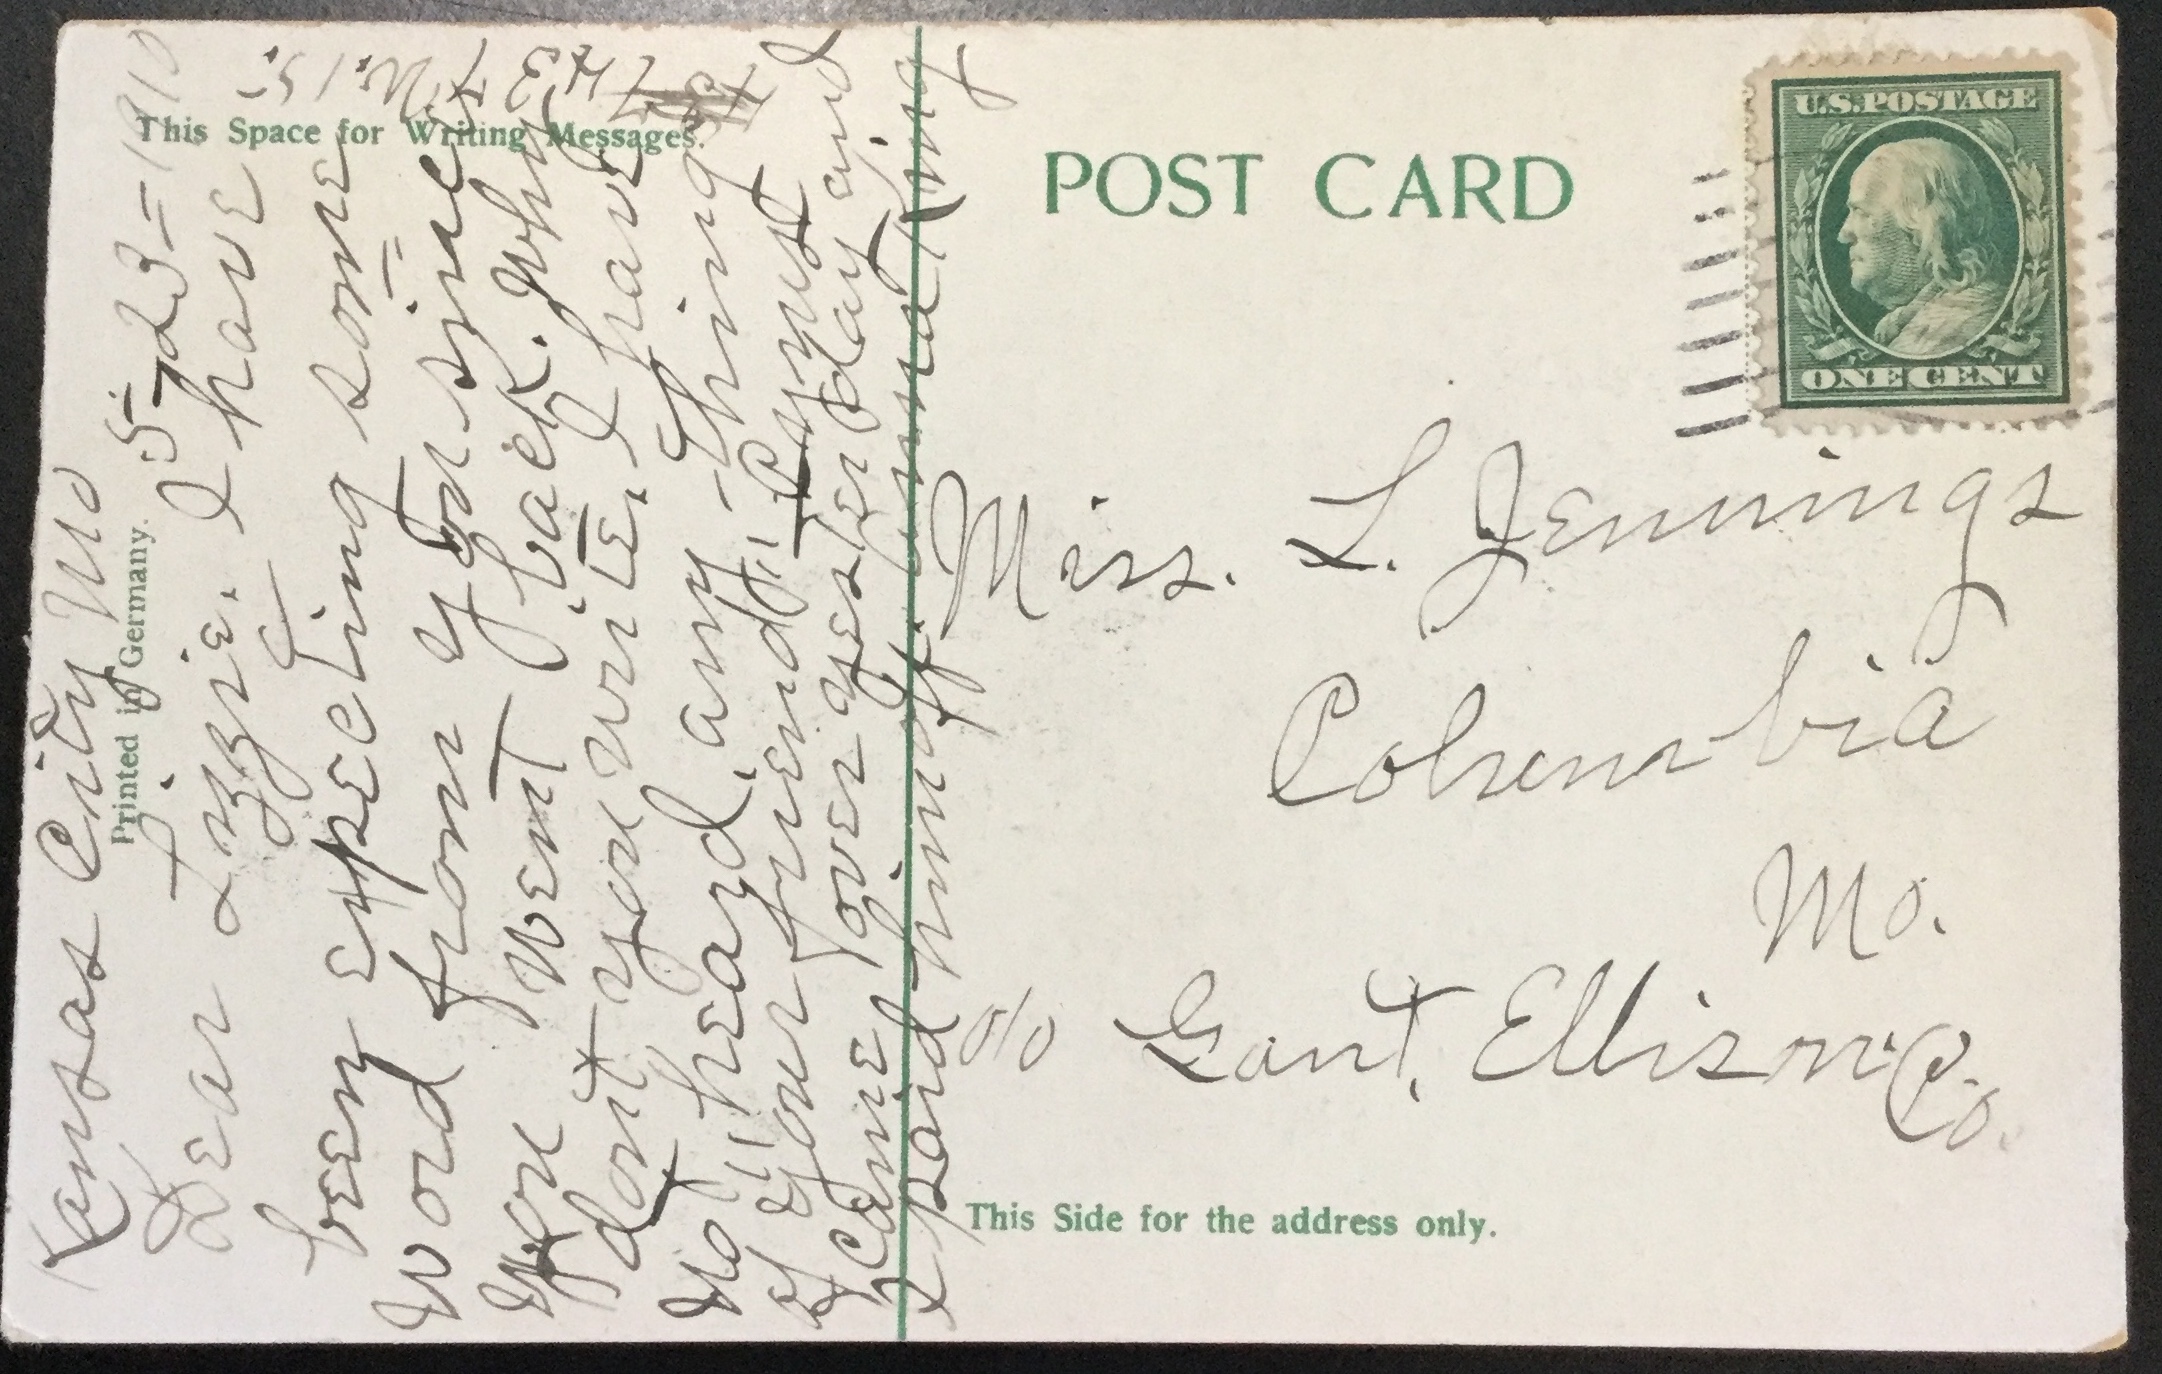 This Space for Writing Messages.
Printed in Germany.
Kansas City Mo
5-23-1910
Dear Lizzie. I have
been expecting some
word from you since
you went back. Why
dont you write. I have
not heard any thing
of your friend
came over yesterday and
POST CARD
U.S. POSTAGE
ONE CENT
Miss. L. Jennings
Columbia
Mo.
c/o Gant, Ellison Co.
This Side for the address only.